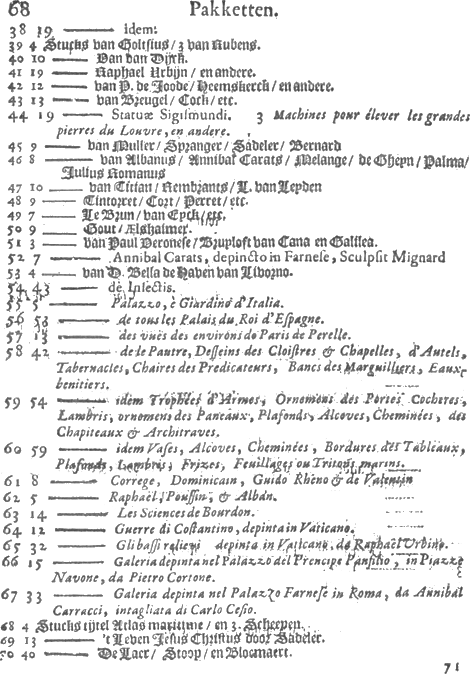 68 Pakketten.
38 19 —— idem.
39 4 Stucks van Goltsius / 3 van Rubens.
40 10 —— Van van Dijck.
41 19 —— Raphael Urbijn / en andere.
42 12 —— van P. de Joode / Heemskerck / en andere.
43 13 —— van Breugel / Cock / etc.
44 19 —— Statuæ Sigismundi. 3 Machines pour élever les grandes
pierres du Louvre, en andere.
45 9 —— van Muller / Spranger / Sadeler / Bernard
46 8 —— van Albanus / Annibal Carats / Melange / de Gheyn / Palma /
Julius Romanus
47 10 —— van Titian / Rembrants / L. van Leyden
48 9 —— Tintoret / Cort / Perret / etc.
49 7 —— Le Brun / van Eyck / etc.
50 9 —— Gout / Ælshaimer.
51 3 —— van Paul Veronese / Bruyloft van Cana en Galilea.
52 7 —— Annibal Carats, depincto in Farnese, Sculpsit Mignard
53 4 —— van D. Bella de Haven van Livorno.
54 43 —— de Insectis.
55 5 —— Palazzo, è Giardino d'Italia.
56 53 —— de tous les Palais du Roi d'Espagne.
57 13 —— des vuës des environs de Paris de Perelle.
58 42 —— de le Pautre, Desseins des Cloistres & Chapelles, d'Autels,
Tabernacles, Chaires des Predicateurs, Bancs des Marguilliers, Eaux-
benitiers.
59 54 —— idem Trophées d'Armes, Ornemens des Portes Cocheres,
Lambris, ornemens des Paneaux, Plafonds, Alcoves, Cheminées, des
Chapiteaux & Architraves.
60 59 —— idem Vases, Alcoves, Cheminées, Bordures des Tableaux,
Plafonds, Lambris, Frizes, Feuillages ou Tritons marins.
61 8 —— Correge, Dominicain, Guido Rheno & de Valentin
62 5 —— Raphaël, Poussin, & Alban.
63 14 —— Les Sciences de Bourdon.
64 12 —— Guerre di Costantino, depinta in Vaticano.
65 32 —— Gli bassi relievi depinta in Vaticano, da Raphaël Urbino.
66 15 —— Galeria depinta nel Palazzo del Prencipe Panfilio, in Piazza
Navone, da Pietro Cortone.
67 33 —— Galeria depinta nel Palazzo Farnese in Roma, da Annibal
Carracci, intagliata di Carlo Cesio.
68 4 Stucks tijtel Atlas maritime / en 3. Scheepen.
69 13 —— 't Leven Jesus Christus door Sadeler.
70 40 —— De Laer / Stoop / en Bloemaert.
71